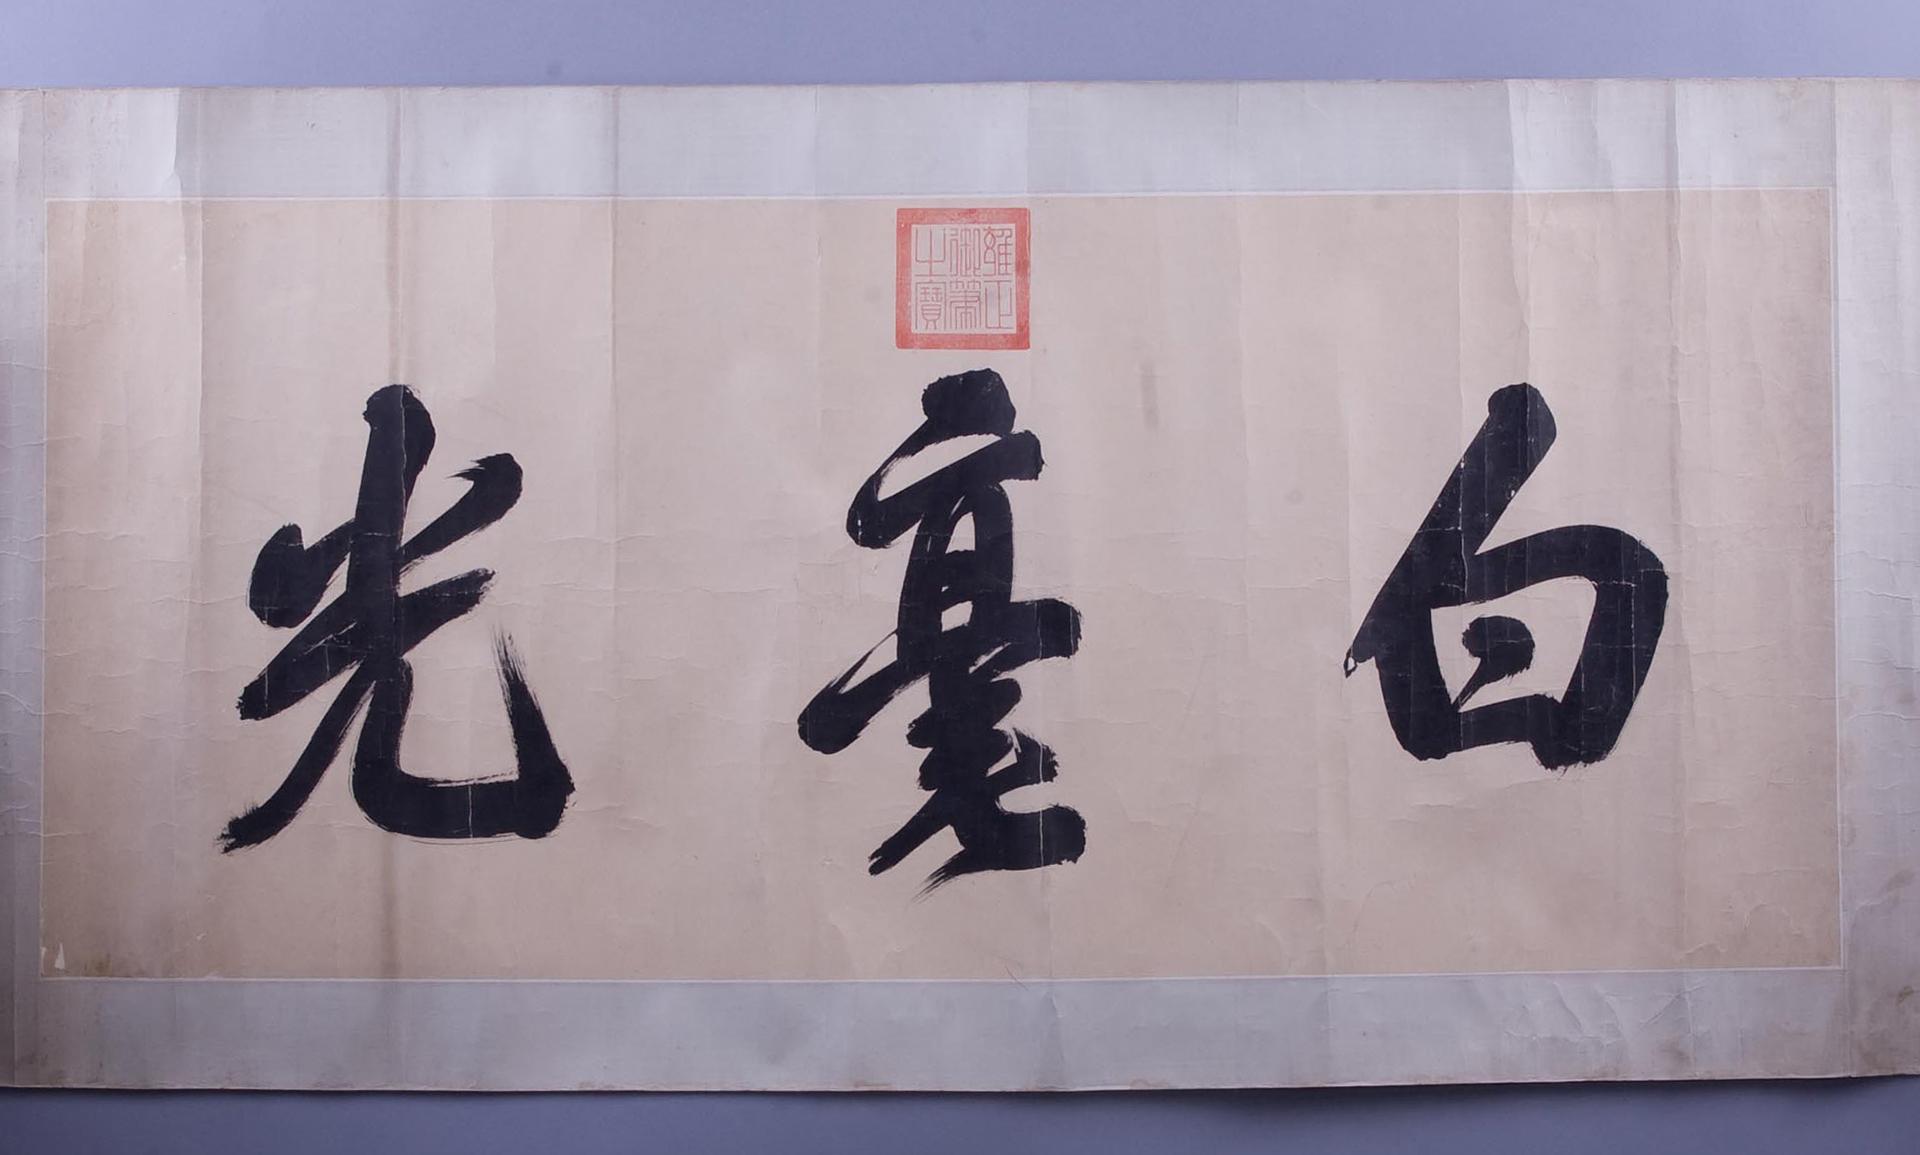 白毫光
雍正御筆之寶